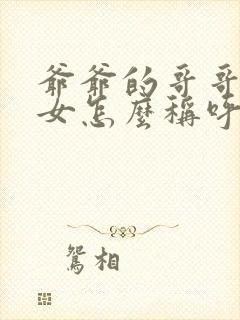 爺爺的哥哥
女怎麼稱呼
鴛相